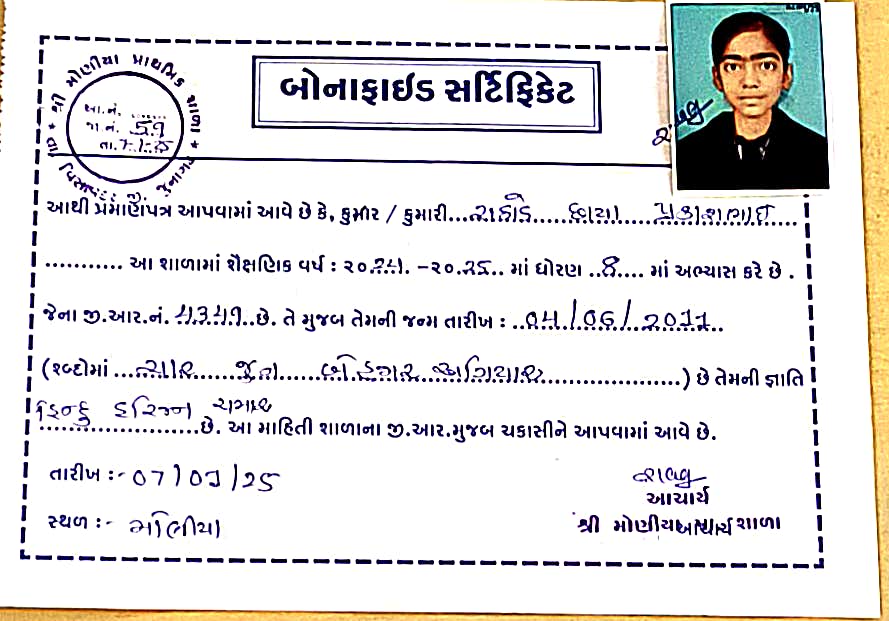 શ્રી મોણીયા પ્રાથમિક શાળા
જા.નં. 59
તા. 7-1-25
બોનાફાઈડ સર્ટિફિકેટ
આથી પ્રમાણપત્ર આપવામાં આવે છે કે, કુમાર / કુમારી...રાઠોડ.....છાયા....પ્રકાશભાઈ....
........... આ શાળામાં શૈક્ષણિક વર્ષ : ૨૦.24. -૨૦.25.. માં ધોરણ ..8.... માં અભ્યાસ કરે છે .
જેના જી.આર.નં. 4341..છે. તે મુજબ તેમની જન્મ તારીખ : ..04/06/2011..
(શબ્દોમાં ...ચાર.....જુન.....બે હજાર અગિયાર.....................) છે તેમની જ્ઞાતિ
હિન્દુ હરિજન ચમાર
.....................છે. આ માહિતી શાળાના જી.આર.મુજબ ચકાસીને આપવામાં આવે છે.
તારીખ :- 07/01/25
આચાર્ય
સ્થળ :- મોણીયા
શ્રી મોણીયા શાળા